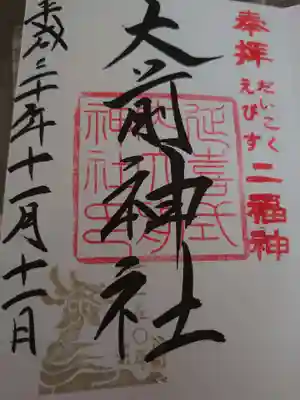 奉拝
だいこく
えびす
二福神
大前神社
延喜式
内大前
神社印
平成二十年十一月十一日